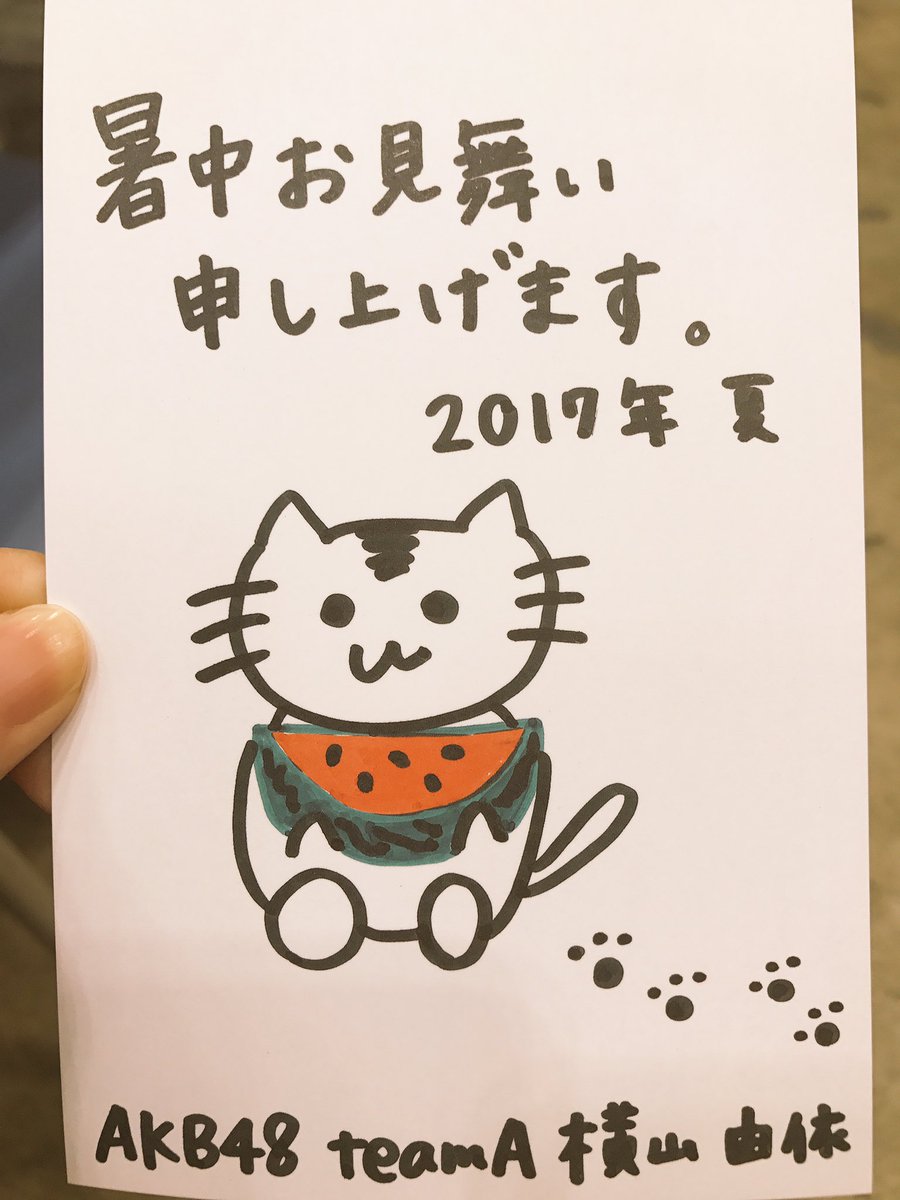 暑中お見舞い
申し上げます。
2017年 夏
AKB48 teamA 横山 由依